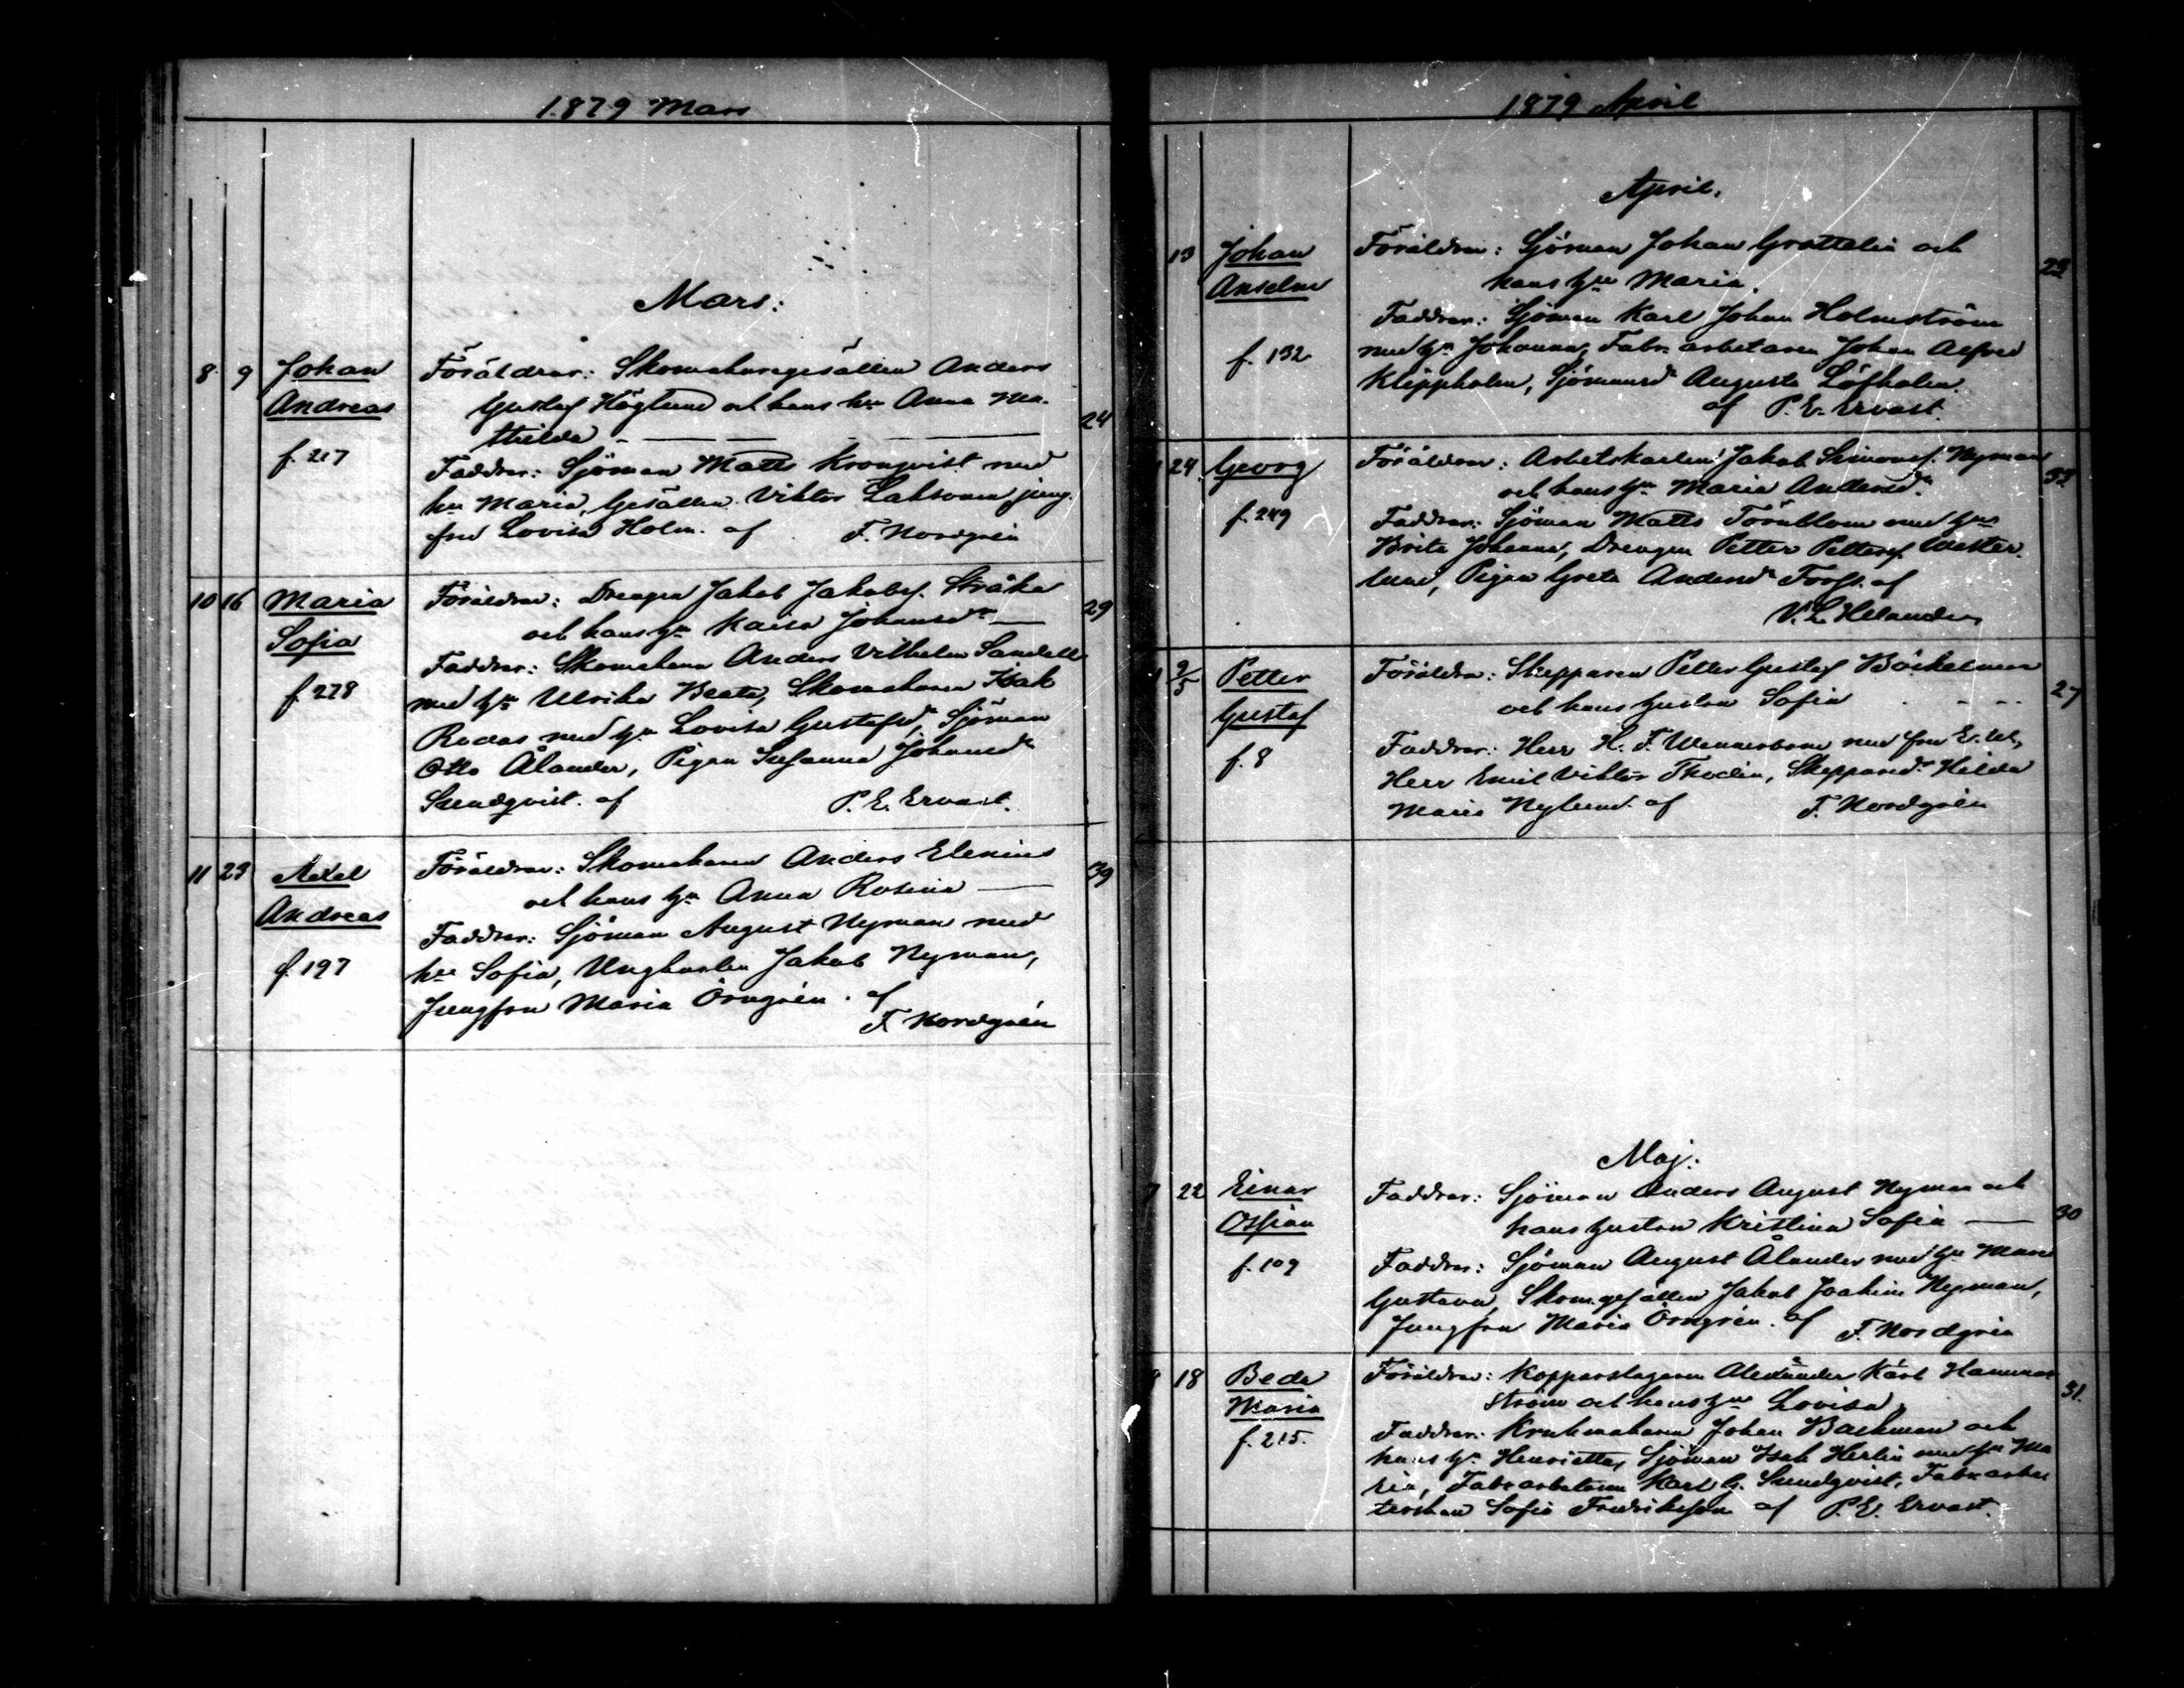 1879 Mars
Mars:
8 9 Johan Föräldrar: Skomakaregesällen Anders
Andreas Gustaf Höglund och hans hu Anna Ma-
thilda 24
f. 217 Faddrar: Sjöman Matts Kronqvist med
hu Maria, Gesällen Viktor Laksonen, jung-
fru Lovisa Holm. af F. Nordgrén
10 16 Maria Föräldrar: Drengen Jakob Jakobsf. Stråka 29
Sofia och hans hu Kaisa Johansdr
Faddrar: Skomakaren Anders Vilhelm Sandell
f. 278 med hu Ulrika Beata, Skomakaren Isak
Rodas med hu Lovisa Gustafsdr, Sjöman
Otto Ålander, Pigan Susanna Johansdr
Sundqvist. af P. E. Ervast.
11 23 Axel Föräldrar: Skomakaren Anders Elenius 39
Andreas och hans hu Anna Rosina
Faddrar: Sjöman August Nyman med
f. 197 hu Sofia, Ungkarlen Jakob Nyman,
Jungfru Maria Örngrén. af
F. Nordgrén
1879 April
April.
13 Johan Föräldrar: Sjöman Johan Grottelin och
Anselm hans hu Maria.
Faddrar: Sjöman Karl Johan Holmström
f. 132 med hu Johanna, Fabr. arbetaren Johan Alfred
Klippholm, Sjömansdr Augusta Löfholm.
af P. E. Ervast.
24 Georg Föräldrar: Arbetskarlen Jakob Simonsf. Nyman
och hans hu Maria Andersdr
f. 249 Faddrar: Sjöman Matts Törnblom med hu
Brita Johanna, Drengen Petter Pettersf. Wester-
lund, Pigan Greta Andersdr Forss. af
V. L. Helander
9/5 Petter Föräldrar: Skepparen Petter Gustaf Böckelman 27
Gustaf och hans hustru Sofia
f. 8 Faddrar: Herr H. F. Wennerbom med fru
Herr Emil Viktor Thodin, Skepparedr Hilda
Maria Nylund. af F. Nordgrén
Maj:
22 Einar Faddrar: Sjöman Anders August Nyman och 30
Ossian hans hustru Kristina Sofia
f. 109 Faddrar: Sjöman August Ålander med hu Maria
Gustava, Skom.gesällen Jakob Joakim Nyman,
Jungfru Maria Örngrén. af F. Nordgrén
18 Beda Föräldrar: Kopparslagaren Alexander Karl Hammar- 31.
Maria ström och hans hu Lovisa.
f. 215. Faddrar: Krukmakaren Johan Backman och
hans hu Henrietta, Sjöman Isak Herlin med hu Ma-
ria, Fabr.arbetaren Karl G. Sundqvist, Fabr.arbe-
terskan Sofia Fredriksson af P. E. Ervast.